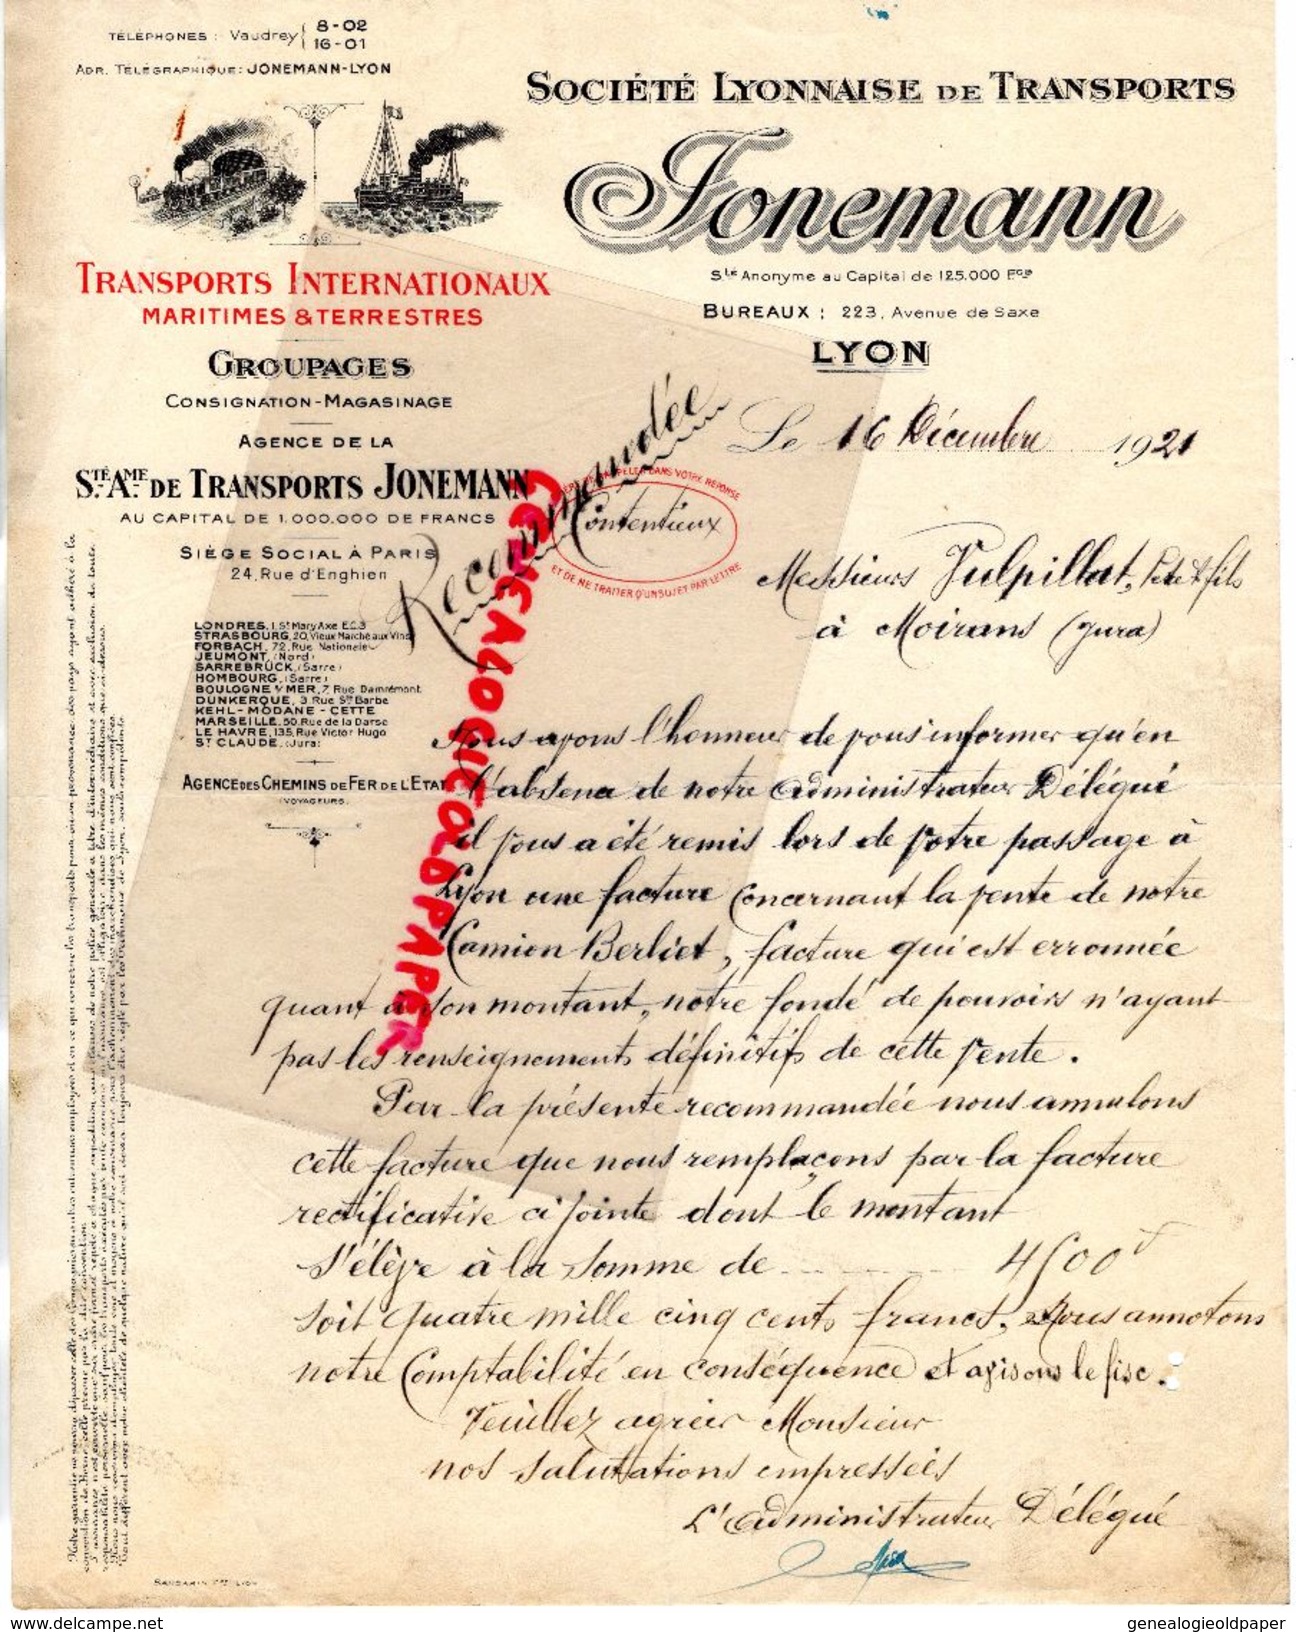 TÉLÉPHONES : Vaudrey { 8-02
16-01
ADR. TÉLÉGRAPHIQUE: JONEMANN-LYON
SOCIÉTÉ LYONNAISE DE TRANSPORTS
Jonemann
Sté Anonyme au Capital de 125.000 Fcs
BUREAUX : 223, Avenue de Saxe
LYON
TRANSPORTS INTERNATIONAUX
MARITIMES & TERRESTRES
GROUPAGES
CONSIGNATION-MAGASINAGE
AGENCE DE LA
STÉ AME DE TRANSPORTS JONEMANN
AU CAPITAL DE 1.000.000 DE FRANCS
SIÈGE SOCIAL À PARIS
24, Rue d'Enghien
LONDRES, 1, St Mary Axe EC3
STRASBOURG, 20, Vieux Marché aux Vins
FORBACH, 72, Rue Nationale
JEUMONT, (Nord)
SARREBRÜCK, (Sarre)
HOMBOURG, (Sarre)
BOULOGNE S/ MER, 7, Rue Damrémont
DUNKERQUE, 3, Rue Ste Barbe
KEHL - MODANE - CETTE
MARSEILLE, 50, Rue de la Darse
LE HAVRE, 135, Rue Victor Hugo
ST CLAUDE, (Jura)
AGENCE DES CHEMINS DE FER DE L'ETAT
(VOYAGEURS)
Le 16 Décembre 1921
Recommandée
RAPPELER DANS VOTRE RÉPONSE
Contentieux
ET DE NE TRAITER QU'UN SUJET PAR LETTRE
Messieurs Vulpillat, Père & fils
à Moirans (Jura)
Nous avons l'honneur de vous informer qu'en
l'absence de notre administrateur Délégué
il vous a été remis lors de votre passage à
Lyon une facture concernant la vente de notre
Camion Berliet, facture qui est erronnée
quant à son montant, notre fondé de pouvoirs n'ayant
pas les renseignements définitifs de cette vente.
Par la présente recommandée nous annulons
cette facture que nous remplaçons par la facture
rectificative ci jointe dont le montant
s'élève à la somme de 4500 f
soit quatre mille cinq cents francs. Nous annotons
notre Comptabilité en conséquence et avisons le fisc.
Veuillez agréer Monsieur
nos salutations empressées
L'administrateur Délégué
GENEALOGIEOLDPAPER
genealogieoldpaper